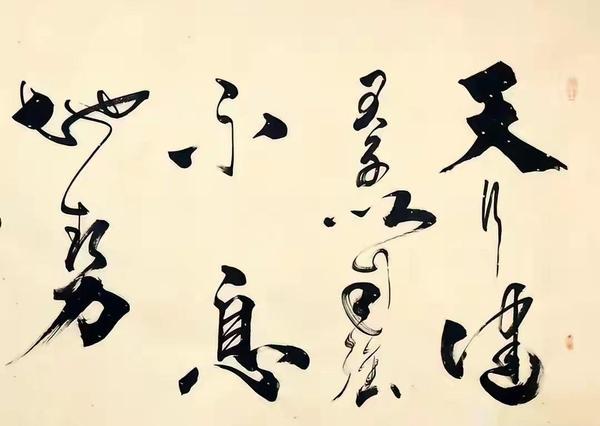 天行健
君子以自强
不息
地势